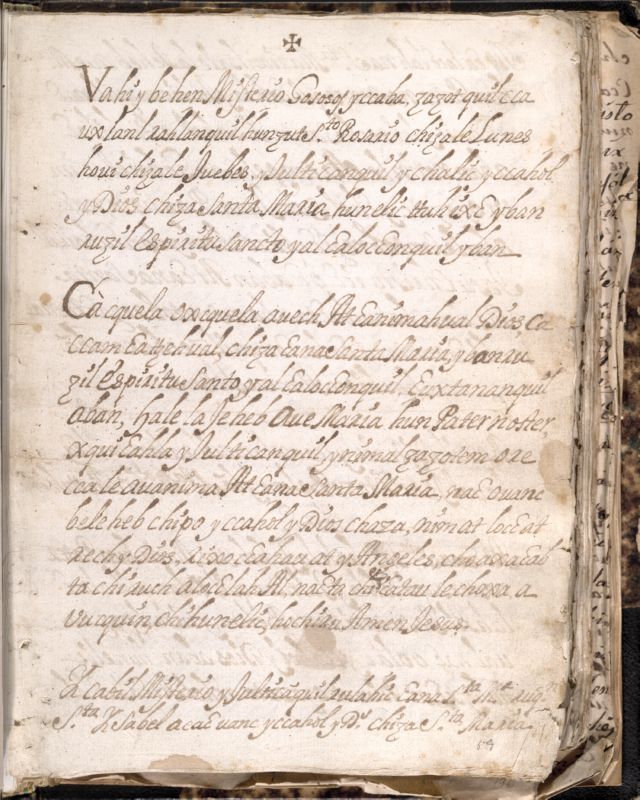 ✠
Vahi y behen Misterio Gososos yccaba, zazot quil cca
uxlanl rahlanquil hunzut S.to Rosario chizale Lunes
houi chizale Juebes, y Julticanquil y chalic yccahol
y Dios chiza Santa Maria hunelic ttuhixc yban
auzil Espiritu Sancto yal caloccenquil yban
Cacquela oxcquela auech At canimahual Dios, ca
ccam cattehual, chiza cana Santa Maria, y banau
zil Espiritu Santo yal caloccenquil, cuxtananquil
aban, hale la feheb Aue Maria hun Paternoster
xquicahla y Julticanquil, y numal zazotem ore
cca le auanima At cana Santa Maria, nac ouanc
beleheb chipo yccahol y Dios chaza, nimat locat
aech y Dios, uixocahau at y Angeles, cho axa cab
ta chi auch aloclah Al, nacta catau le choxa, a
vucquin, chihunelic, hochiau Amen Jesus.
X cabil Misterio, y Julticaquil aulahic cana S.ta M.a
S.ta Ysabel acac uanc yccahol y D.s chiza S.ta Maria